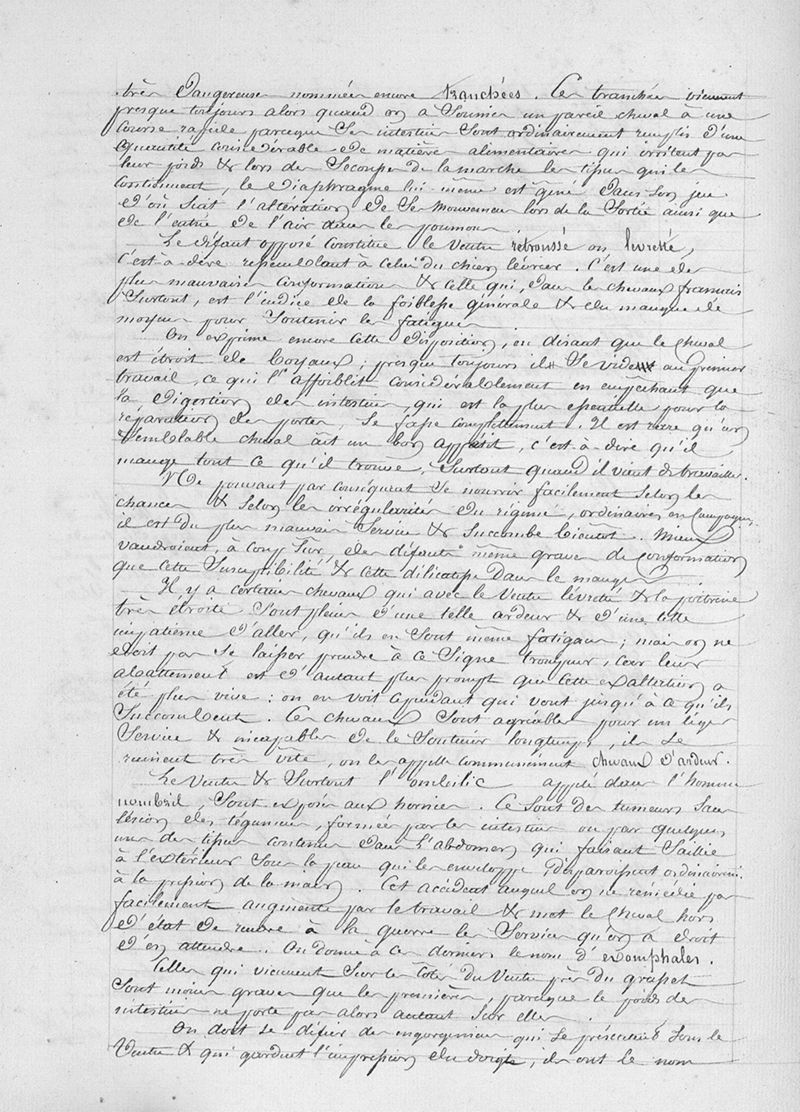 très dangereuse nommées encore tranchées. Ces tranchées viennent
presque toujours alors quand on a soumis un pareil cheval à une
course rapide parceque ses intestins sont ordinairement remplis d'une
quantité considérable de matières alimentaires qui irritent par
leur poids & lors des secousses de la marche les tissus qui les
contiennent, le diaphragme lui même est gêné dans son jeu
d'où suit l'altération de ses mouvemens lors de la sortie ainsi que
de l'entrée de l'air dans les poumons.
Le défaut opposé constitue le ventre retroussé ou levretté,
c'est-à-dire ressemblant à celui du chien lévrier. C'est une des
plus mauvaises conformations & celle qui, dans les chevaux français
surtout, est l'indice de la foiblesse générale & du manque de
moyens pour soutenir les fatigues
On exprime encore cette disposition, en disant que le cheval
est étroit de boyaux; presque toujours il se vide au premier
travail, ce qui l'affoiblit considérablement en empêchant que
la digestion des intestins, qui est la plus essentielle pour la
réparation des pertes, se fasse complettement. Il est rare qu'un
semblable cheval ait un bon appétit, c'est-à-dire qu'il
mange tout ce qu'il trouve, surtout quand il vient de travailler.
Ne pouvant par conséquent se nourrir facilement selon les
chances & selon les irrégularités du régime, ordinaires en campagne,
il est du plus mauvais service & succombe bientôt. Mieux
vaudroient, à coup sûr, des défauts même graves de conformation
que cette susceptibilité & cette délicatesse dans le manger
Il y a certains chevaux qui avec le ventre levretté & la poitrine
très étroite sont pleins d'une telle ardeur & d'une telle
impatience d'aller, qu'ils en sont même fatigans; mais on ne
doit pas se laisser prendre à ce signe trompeur, car leur
abattement est d'autant plus prompt que cette exaltation a
été plus vive: on en voit cependant qui vont jusqu'à ce qu'ils
succombent. Ces chevaux sont agréables pour un léger
service & incapables de le soutenir longtemps, ils se
ruinent très vite, on les appelle communément chevaux d'ardeur.
Le ventre & surtout l'ombilic appelé dans l'homme
nombril, sont exposés aux hernies. Ce sont des tumeurs sans
lésion des tégumens, formées par les intestins ou par quelques
uns des tissus contenus dans l'abdomen qui faisant saillie
à l'extérieur sous la peau qui les enveloppe disparoissent ordinairement
à la pression de la main. Cet accident auquel on ne remédie pas
facilement augmente par le travail & met le cheval hors
d'état de rendre à la guerre les services qu'on a droit
d'en attendre. On donne à ces derniers le nom d'exomphales.
Celles qui viennent sur les côtés du ventre près du grasset
sont moins graves que les premières, parceque le poids des
intestins ne porte pas alors autant sur elles.
On doit se défier des engorgemens qui se présentent sous le
ventre & qui gardent l'impression du doigt, ils ont le nom